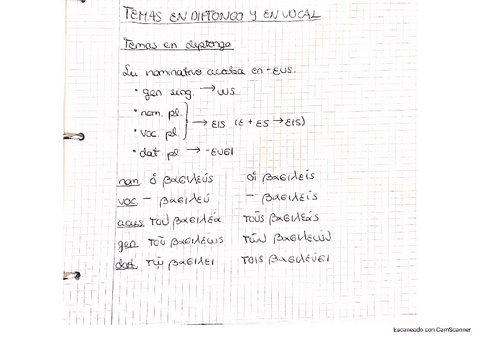 TEMAS EN DIPTONGO Y EN VOCAL
Temas en diptongo
Su nominativo acaba en -EUS.
• gen sing. → ως
• nom. pl.
• voc. pl. → εις (ε + ες → εις)
• dat pl → -ευσι
nom ὁ βασιλεύς οἱ βασιλεῖς
voc – βασιλεῦ – βασιλεῖς
acus τὸν βασιλέα τοὺς βασιλέας
gen τοῦ βασιλέως τῶν βασιλεών
dat τῷ βασιλει τοις βασιλεῦσι
Escaneado con CamScanner